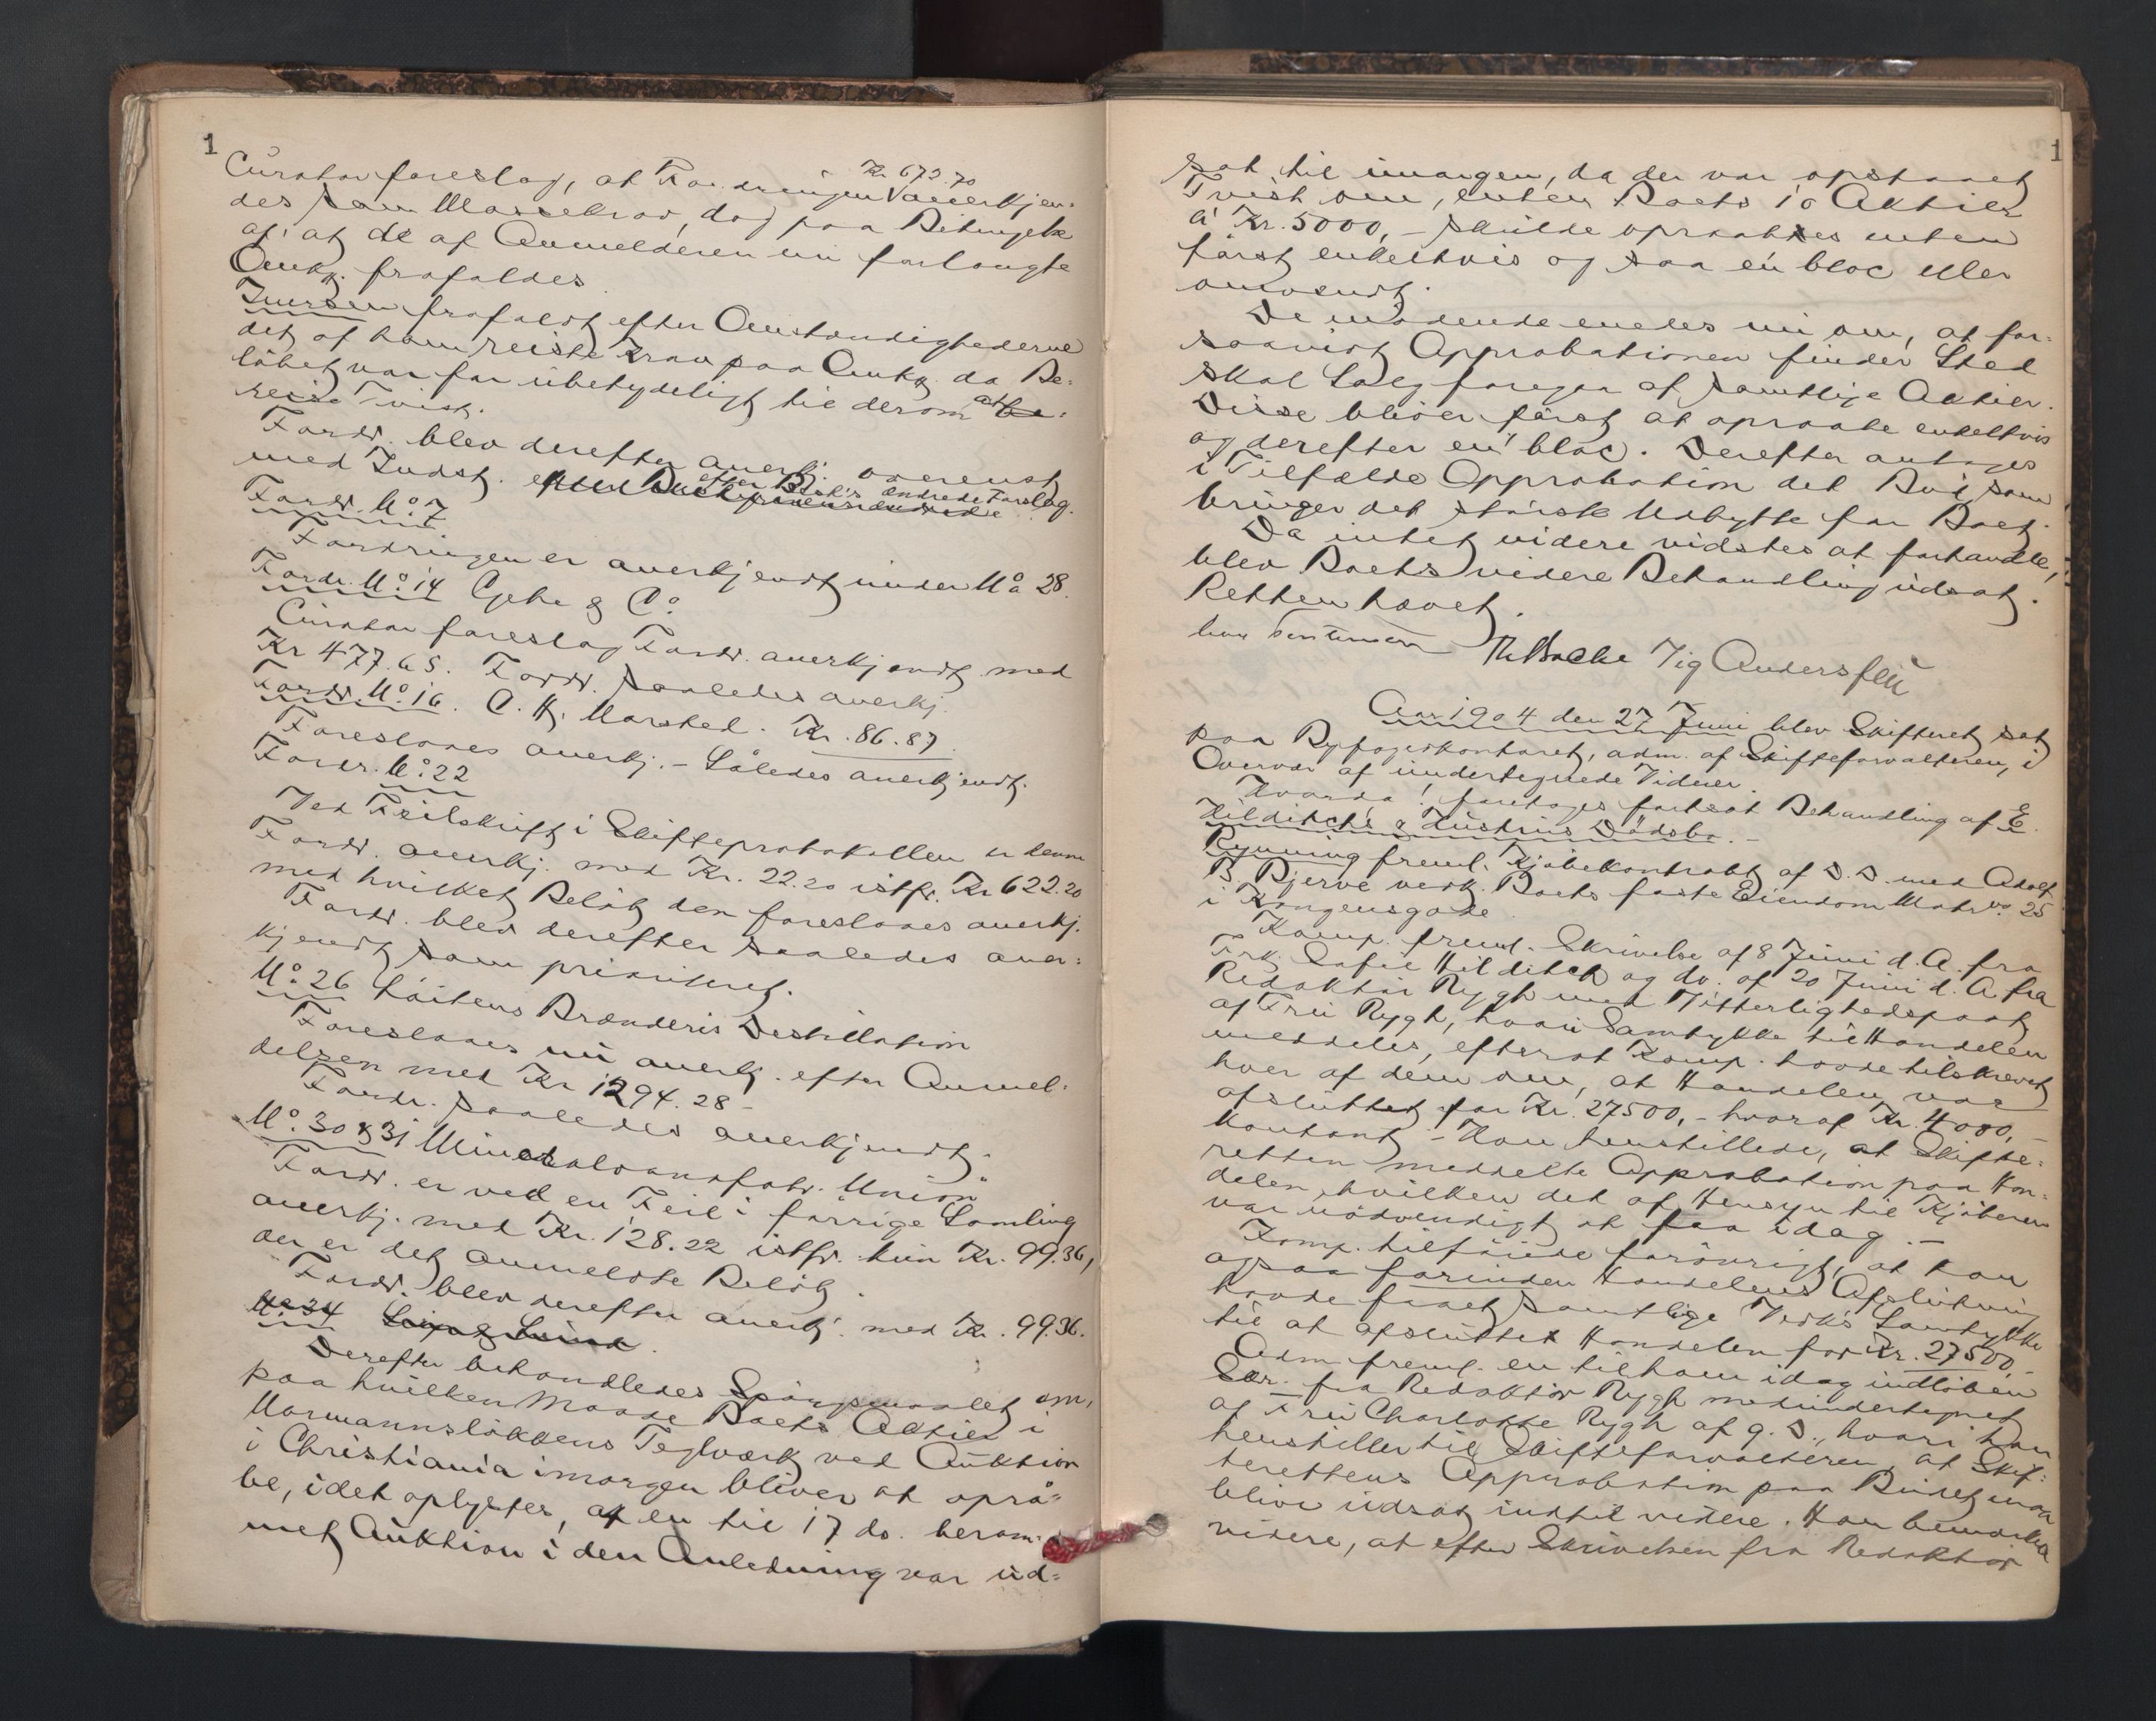 1
Kr. 673.70
Curator foreslog, at Fordringen anerkjen-
des som Massekrav, dog paa Betingelse
af, at de af Anmelderen nu forlangte
Omkg. frafaldes.
Iversen frafaldt efter Omstændighederne
det af ham reiste Krav paa Omkg. da Be-
løbet var for ubetydeligt til derom at
reise Tvist.
Fordr. blev derefter anerkj. overenst
med Indst. efter Bs. ændrede Forslag.
Fordr. No 7
Fordringen er anerkjendt under No 28.
Fordr. No 14 Gehe & Co
Curator foreslog Fordr. anerkjendt med
Kr 477.65. Fordr. saaledes anerkj.
Fordr. No 16. O. H. Marsted. Kr. 86.87.
Foreslaaes anerkj. - Således anerkjendt.
Fordr. No 22
Ved Feilskrift i Skifteprotokollen er denne
Fordr. anerkj. med Kr. 22.20 istfr. Kr 622.20
med hvilket Beløb den foreslaaes anerkj.
Fordr. blev derefter saaledes aner-
kjendt som prioriteret.
No 26 Løitens Brænderis Destillation
Foreslaaes nu anerkj. efter Anmel-
delsen med Kr 1294.28 -
Fordr. saaledes anerkjendt.
No 30 & 31 Mineralvandsfabr. "Union"
Fordr. er ved en Feil i forrige Samling
anerkj. med Kr. 128.22 istfr. kun Kr. 99.36,
der er det anmeldte Beløb.
Fordr. blev derefter anerkj. med Kr. 99.36.
No 34
Derefter behandledes Spørgsmaalet om,
paa hvilken Maade Boets Aktier i
Normannsløkkens Teglværk ved Auktion
i Christiania imorgen bliver at opraa-
be, idet oplystes, at en til 17 ds. beram-
met Auktion i den Anledning var ud-
1
sat til imorgen, da der var opstaaet
Tvist om, enten Boets 10 Aktier
á Kr. 5000,- skulde opraabes enten
først enkeltvis og saa en bloc eller
omvendt.
De mødende enedes nu om, at for-
saavidt Approbationen finder Sted
skal Salg foregaa af samtlige Aktier.
Disse bliver først at opraabe enkeltvis
og derefter en bloc. Derefter antages
i Tilfælde Approbation det Bud som
bringer det største Udbytte for Boet.
Da intet videre vidstes at forhandle,
blev Boets videre Behandling udsat.
Retten hævet.
Th Bache Sig Anderssen
Aar 1904 den 27 Juni blev Skifteret sat
paa Byfogedkontoret, adm. af Skifteforvalteren, i
Overvær af undertegnede Vidner.
Hvorda! foretoges fortsat Behandling af E.
Hilditchs & Hustrus Dødsbo. -
Rynning freml. Kjøbekontrakt af D. D. med Adolf
B. Bjerve vedk. Boets faste Eiendom Matr No 25
i Kongensgade.
Komp. freml. Skrivelse af 8 Juni d. A. fra
Frk. Sofie Hilditch og do. af 20 Juni d. A. fra
Redaktør Rygh med Vitterlighedspaat.
af Fru Rygh, hvori Samtykke til Handelen
meddeles, efterat Komp. havde tilskrevet
hver af dem om, at Handelen var
afsluttet for Kr. 27500,- hvoraf Kr. 4000,-
kontant. - Han henstillede, at Skifte-
retten meddelte Approbation paa Han-
delen, hvilken det af Hensyn til Kjøberen
var nødvendigt at faa idag. -
Komp. tilføiede forøvrigt, at han
ogsaa forinden Handelens Afslutning
havde faaet samtlige Vedk's Samtykke
til at afslutte Handelen for Kr. 27500,-
Adm. freml. en til ham idag indløben
Skr. fra Redaktør Rygh medundertegnet
af Fru Charlotte Rygh af g. D., hvori han
henstiller til Skifteforvalteren, at Skif-
terettens Approbation paa Budet maa
blive udsat indtil videre. Han bemærker
videre, at efter Skrivelsen fra Redaktør